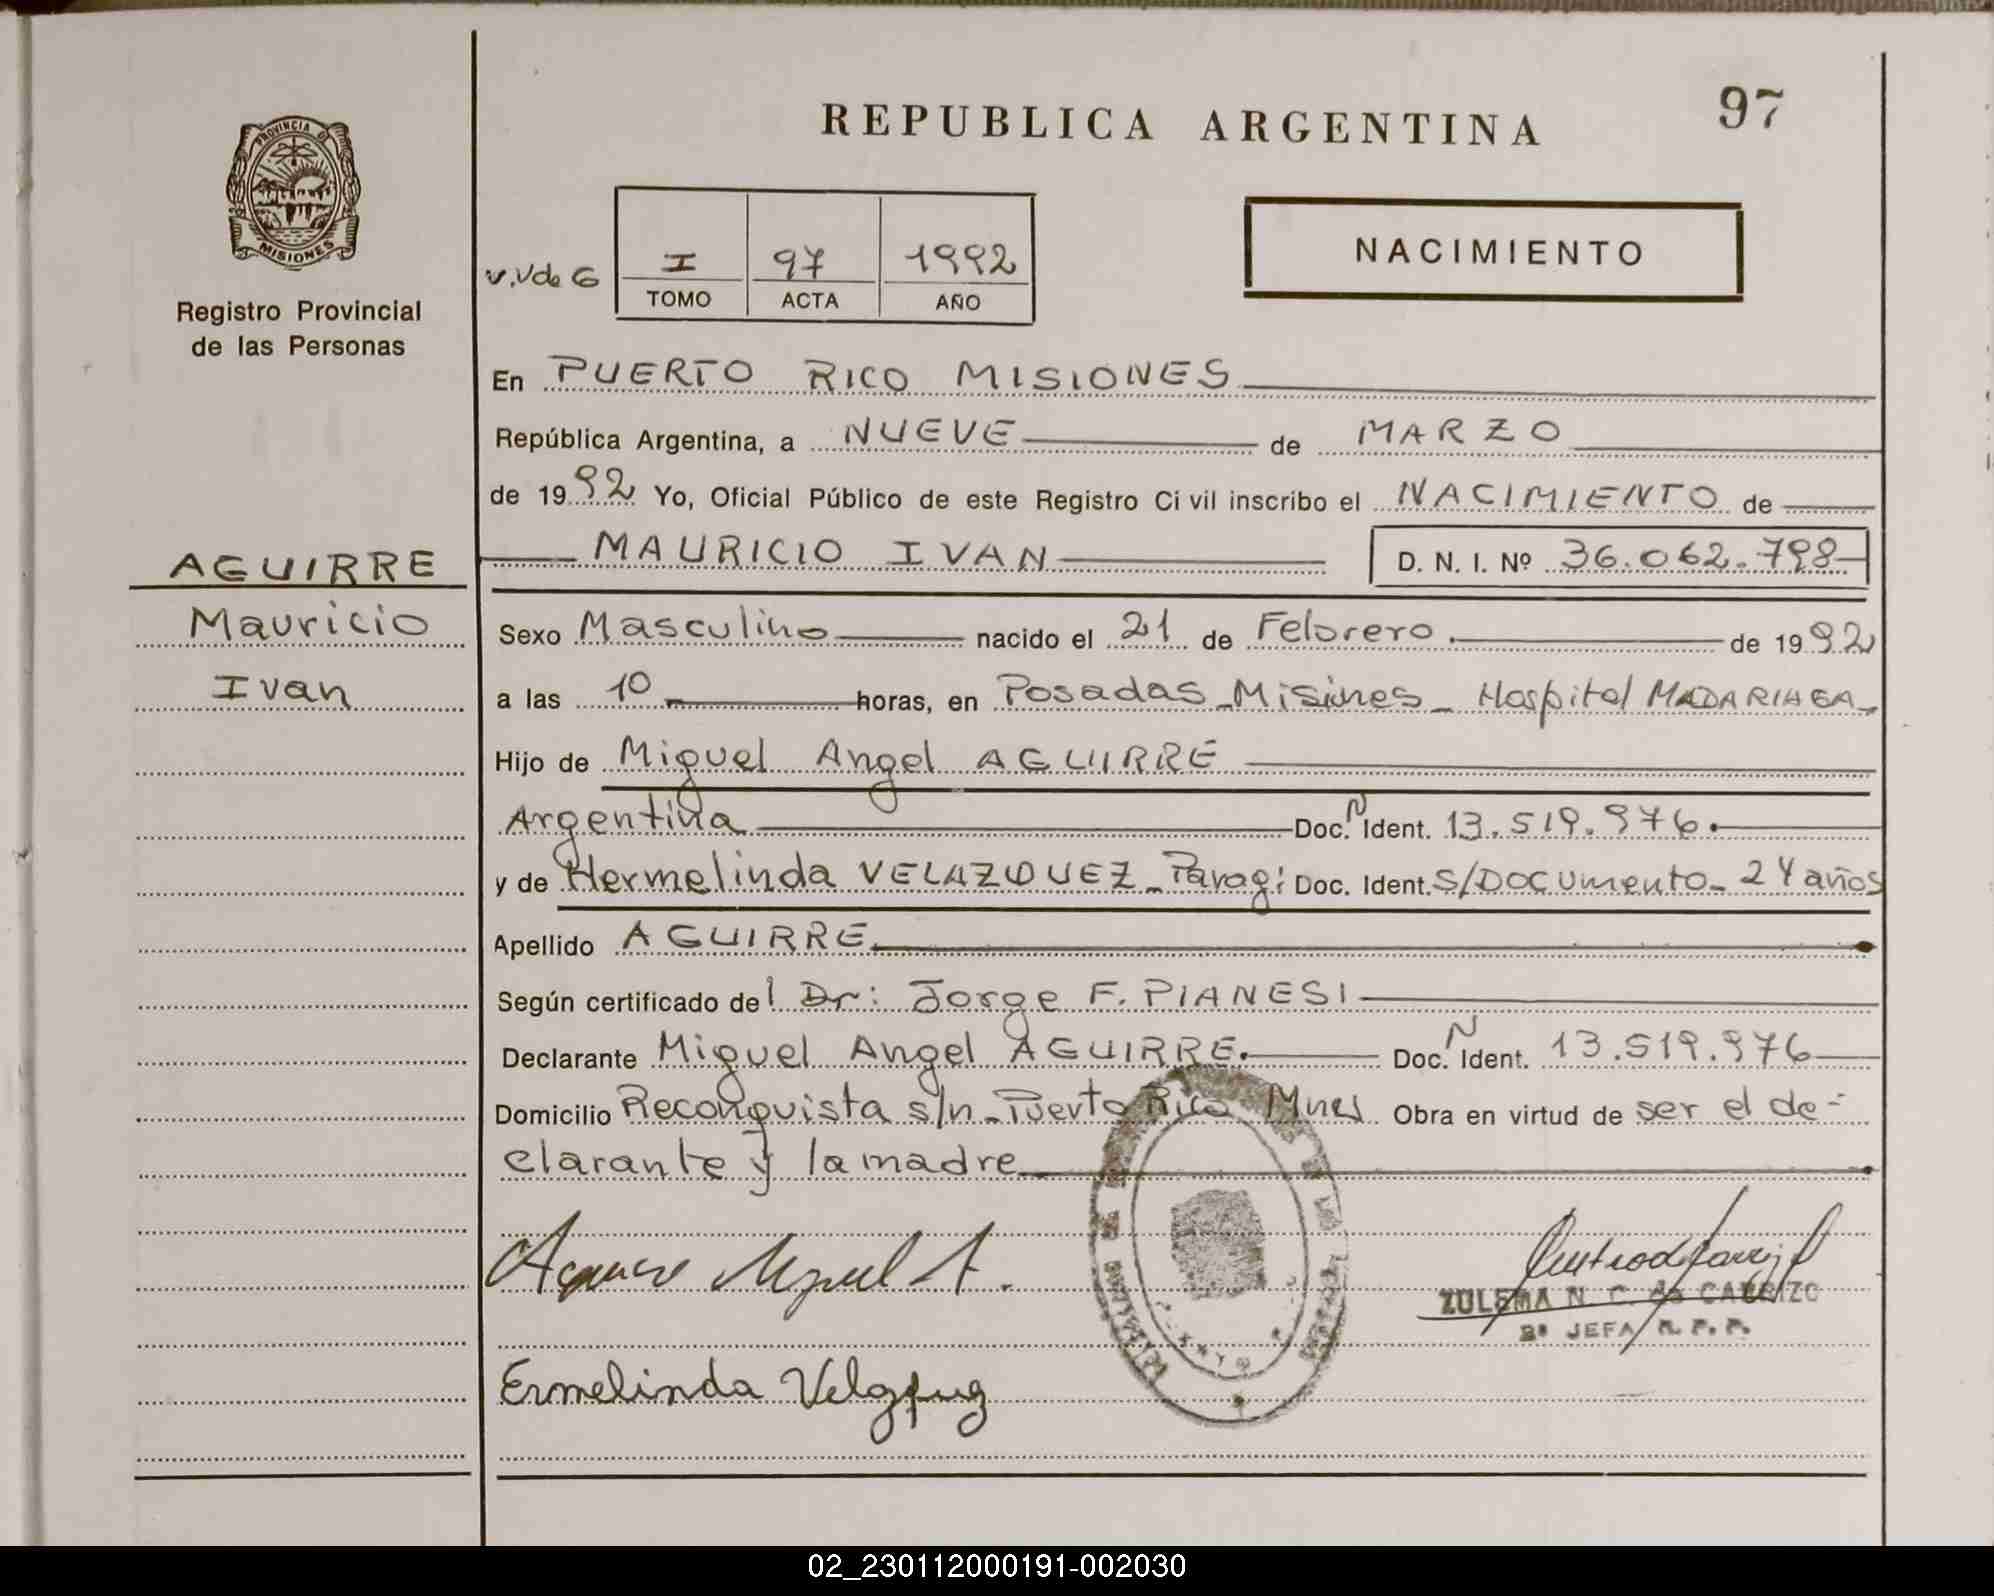 REPUBLICA ARGENTINA
97
PROVINCIA DE
MISIONES
Registro Provincial
de las Personas
v.Vde G
I 97 1992
TOMO ACTA AÑO
NACIMIENTO
En PUERTO RICO MISIONES
República Argentina, a NUEVE de MARZO
de 1992 Yo, Oficial Público de este Registro Ci vil inscribo el NACIMIENTO de
MAURICIO IVAN D. N. I. Nº 36.062.798
AGUIRRE
Mauricio
Ivan
Sexo Masculino nacido el 21 de Febrero de 1992
a las 10 horas, en Posadas - Misiones - Hospital MADARIAGA -
Hijo de Miguel Angel AGUIRRE
Argentina Doc. N Ident. 13.519.976.
y de Hermelinda VELAZQUEZ - Parag: Doc. Ident. S/Documento - 24 años
Apellido AGUIRRE
Según certificado del Dr: Jorge F. PIANESI
Declarante Miguel Angel AGUIRRE. Doc. N Ident. 13.519.976
Domicilio Reconquista s/n - Puerto Rico Mnes Obra en virtud de ser el de-
clarante y la madre
Aguirre Miguel A.
ZULEMA N. C. de CARRIZO
2ª JEFA R. P. P.
Ermelinda Velazquez
02_230112000191-002030